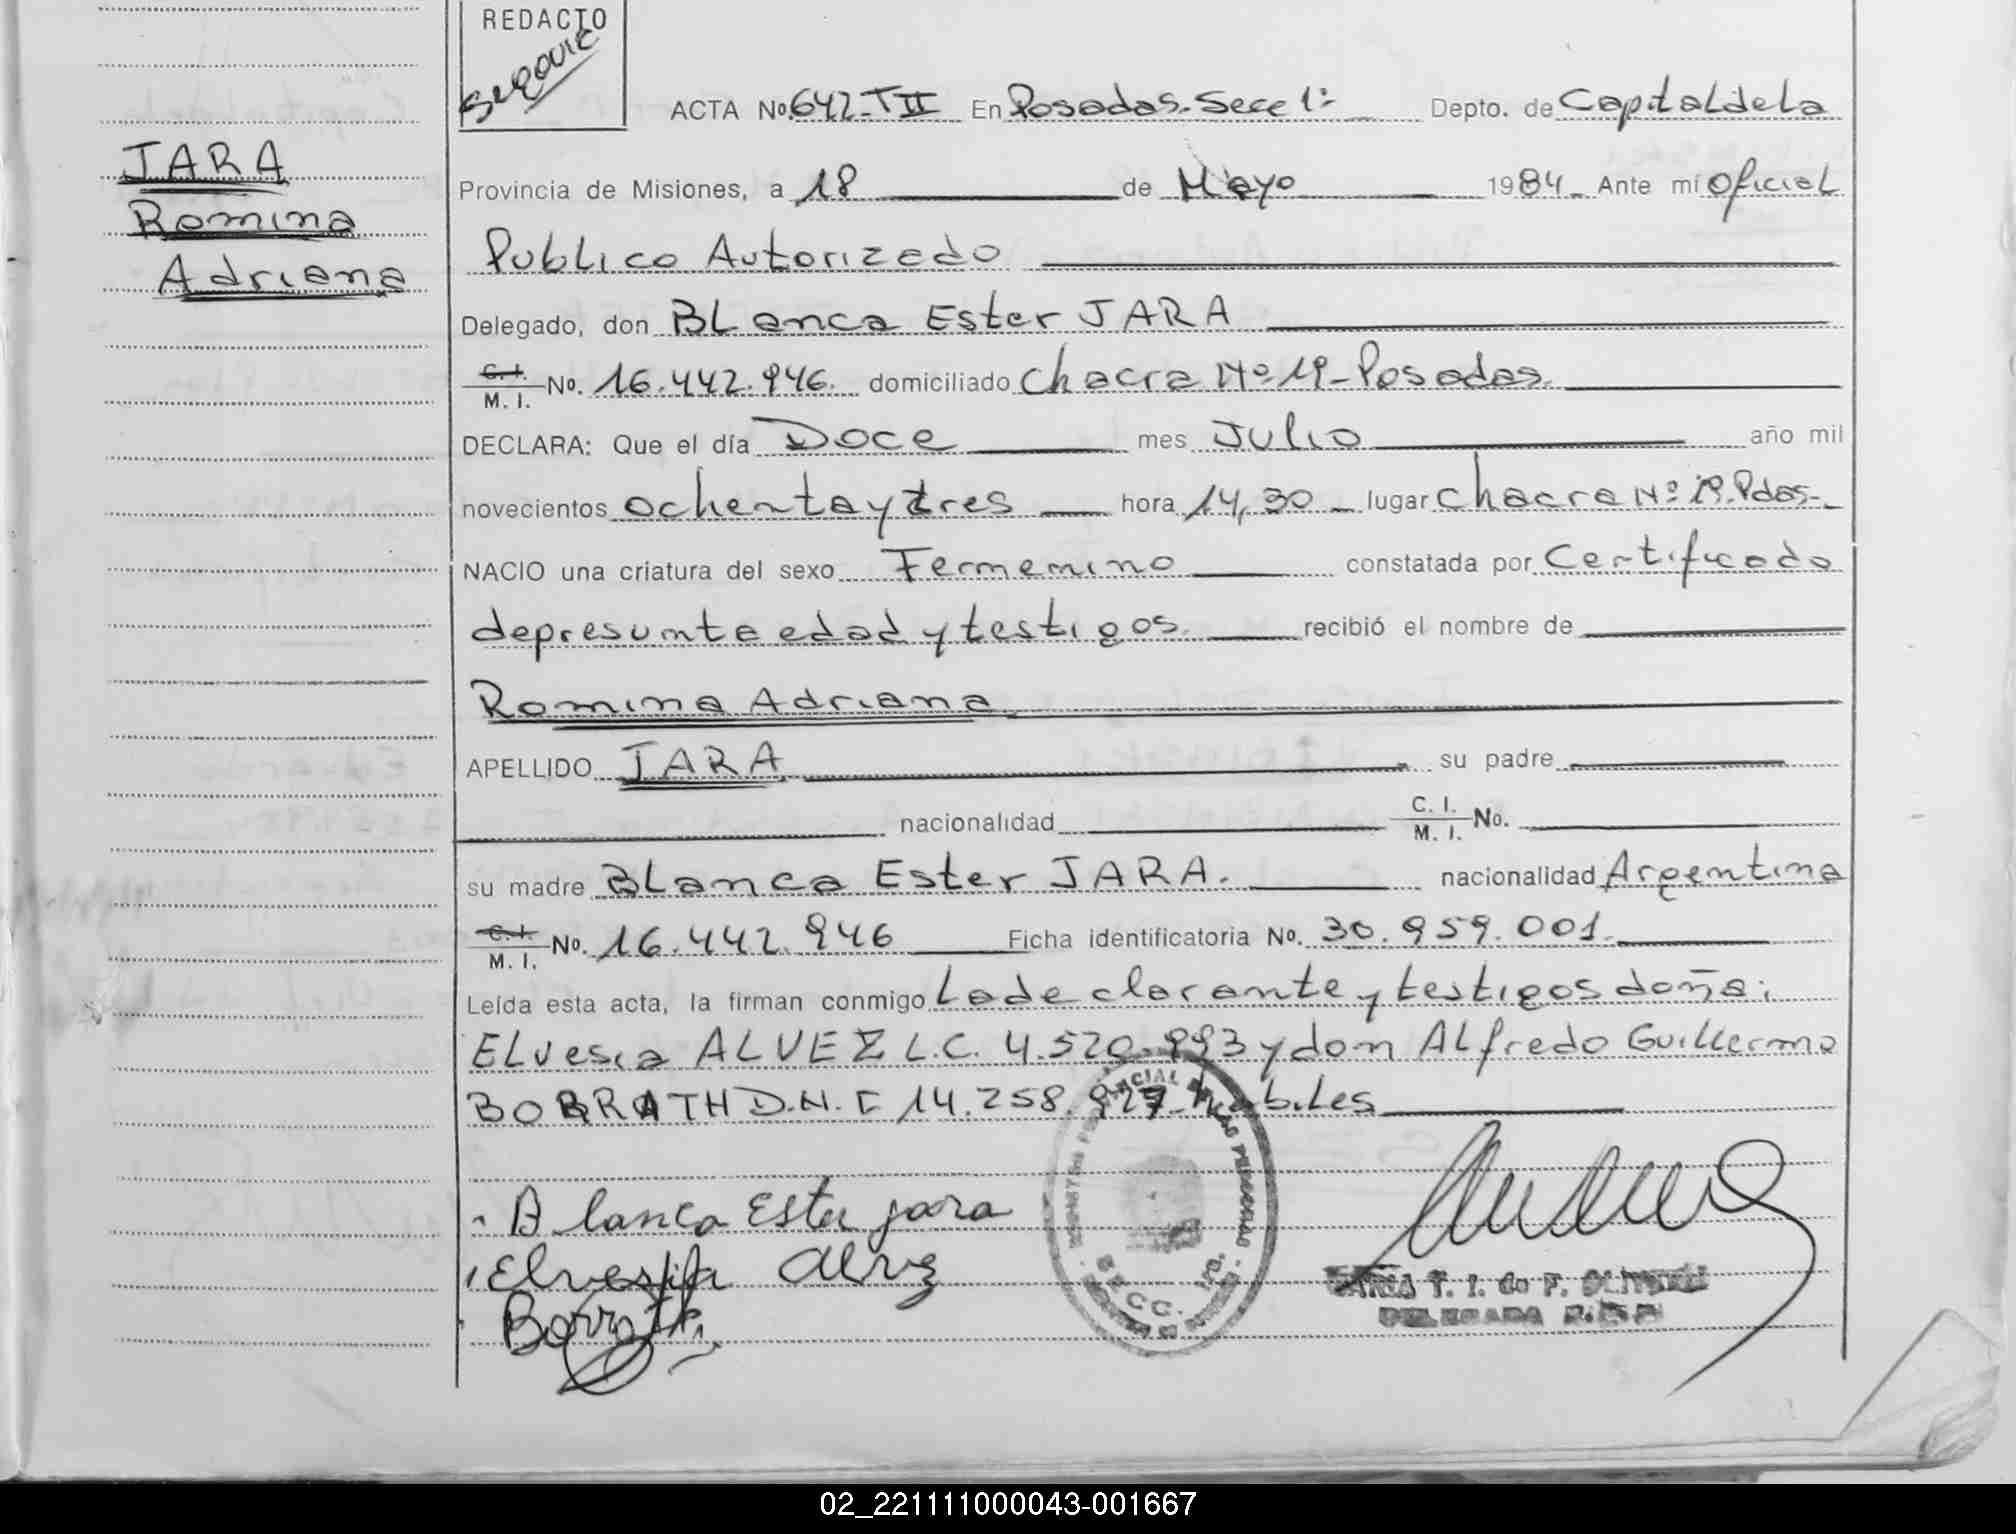 REDACTO
Segovie
ACTA No. 642-TII En Posadas-Secc 1ª Depto. de Capital de la
JARA
Romina
Adriana
Provincia de Misiones, a 18 de Mayo 1984 Ante mí Oficial
Publico Autorizado
Delegado, don Blanca Ester JARA
C.I. M. I. No. 16.442.946. domiciliado Chacra Nº 19-Posadas.
DECLARA: Que el día Doce mes Julio año mil
novecientos ochenta y tres hora 14,30 lugar Chacra Nº 19-Pdas-
NACIO una criatura del sexo Fermemino constatada por Certificado
de presunta edad y testigos recibió el nombre de
Romina Adriana
APELLIDO JARA su padre
nacionalidad C. I. M. I. No.
su madre Blanca Ester JARA. nacionalidad Argentina
C.I. M. I. No. 16.442.946 Ficha identificatoria No. 30.959.001.
Leída esta acta, la firman conmigo La declarante y testigos doña:
ELvesia ALVEZ L.C. 4.520.993 y don ALfredo Guillermo
BORRATH D.N.I 14.258.927- Habiles
Blanca Ester jara
Elvesia Alvez
Borrath
T. I. de F. OLIVERA
DELEGADA
02_221111000043-001667